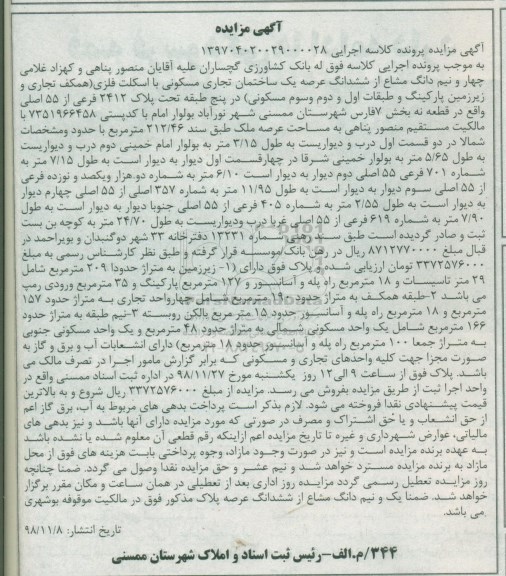 آگهی مزایده
آگهی مزایده پرونده کلاسه اجرایی ۱۳۹۷۰۴۰۲۰۰۲۹۰۰۰۰۲۸
به موجب پرونده اجرایی کلاسه فوق له بانک کشاورزی گچساران علیه آقایان منصور پناهی و کهزاد غلامی
چهار و نیم دانگ مشاع از ششدانگ عرصه یک ساختمان تجاری مسکونی با اسکلت فلزی(همکف تجاری و
زیرزمین پارکینگ و طبقات اول و دوم وسوم مسکونی) در پنج طبقه تحت پلاک ۲۴۱۲ فرعی از ۵۵ اصلی
واقع در قطعه نه بخش ۷فارس شهرستان ممسنی شهر نورآباد بولوار امام با کدپستی ۷۳۵۱۹۶۶۴۵۸ با
مالکیت مستقیم منصور پناهی به مساحت عرصه ملک طبق سند ۲۱۲/۴۶ مترمربع با حدود ومشخصات
شمالا در دو قسمت اول درب و دیواریست به طول ۳/۱۵ متر به بولوار امام خمینی دوم درب و دیواریست
به طول ۵/۶۵ متر به بولوار خمینی شرقا در چهارقسمت اول دیوار به دیوار است به طول ۷/۱۵ متر به
شماره ۷۰۱ فرعی ۵۵ اصلی دوم دیوار به دیوار است ۶/۱۰ متر به شماره دو هزار ویکصد و نوزده فرعی
از ۵۵ اصلی سوم دیوار به دیوار است به طول ۱۱/۹۵ متر به شماره ۳۵۷ اصلی از ۵۵ اصلی چهارم دیوار
به دیوار است به طول ۲/۵۵ متر به شماره ۴۰۵ فرعی از ۵۵ اصلی جنوبا دیوار به دیوار است به طول
۷/۹۰ متر به شماره ۶۱۹ فرعی از ۵۵ اصلی غربا درب ودیواریست به طول ۲۴/۷۰ متر به کوچه بن بست
ثبت و صادر گردیده است طبق سند رهنی شماره ۱۳۲۳۱ دفترخانه ۳۳ شهر دوگنبدان و بویراحمد در
قبال مبلغ ۸۷۱۲۷۷۰۰۰۰ ریال در رهن بانک/موسسه قرار گرفته و طبق نظر کارشناس رسمی به مبلغ
۳۳۷۲۵۷۶۰۰۰ تومان ارزیابی شده و پلاک فوق دارای (۱- زیرزمین به متراژ حدودا ۲۰۹ مترمربع شامل
۲۹ متر تاسیسات و ۱۸ مترمربع راه پله و آسانسور و ۱۲۷ مترمربع پارکینگ و ۳۵ مترمربع ورودی رمپ
می باشد ۲-طبقه همکف به متراژ حدود ۱۹۰ مترمربع شامل چهارواحد تجاری به متراژ حدود ۱۵۷
مترمربع و ۱۸ مترمربع راه پله و آسانسور حدود ۱۵ متر مربع بالکن روبسته ۳-نیم طبقه به متراژ حدود
۱۶۶ مترمربع شامل یک واحد مسکونی شمالی به متراژ حدود ۴۸ مترمربع و یک واحد مسکونی جنوبی
به متراژ جمعا ۱۰۰ مترمربع راه پله و آسانسور حدود ۱۸ مترمربع) دارای انشعابات آب و برق و گاز به
صورت مجزا جهت کلیه واحدهای تجاری و مسکونی که برابر گزارش مامور اجرا در تصرف مالک می
باشد. پلاک فوق از ساعت ۹ الی۱۲ روز یکشنبه مورخ ۹۸/۱۱/۲۷ در اداره ثبت اسناد ممسنی واقع در
واحد اجرا ثبت از طریق مزایده بفروش می رسد. مزایده از مبلغ ۳۳۷۲۵۷۶۰۰۰۰ ریال شروع و به بالاترین
قیمت پیشنهادی نقدا فروخته می شود. لازم بذکر است پرداخت بدهی های مربوط به آب، برق گاز اعم
از حق انشعاب و یا حق اشتراک و مصرف در صورتی که مورد مزایده دارای آنها باشد و نیز بدهی های
مالیاتی، عوارض شهرداری و غیره تا تاریخ مزایده اعم ازاینکه رقم قطعی آن معلوم شده یا نشده باشد
به عهده برنده مزایده است و نیز در صورت وجود مازاد، وجوه پرداختی بابت هزینه های فوق از محل
مازاد به برنده مزایده مسترد خواهد شد و نیم عشر و حق مزایده نقدا وصول می گردد. ضمنا چنانچه
روز مزایده تعطیل رسمی گردد مزایده روز اداری بعد از تعطیلی در همان ساعت و مکان مقرر برگزار
خواهد شد. ضمنا یک و نیم دانگ مشاع از ششدانگ عرصه پلاک مذکور فوق در مالکیت موقوفه بوشهری
می باشد.
تاریخ انتشار: ۹۸/۱۱/۸
۳۴۴/م.الف-رئیس ثبت اسناد و املاک شهرستان ممسنی